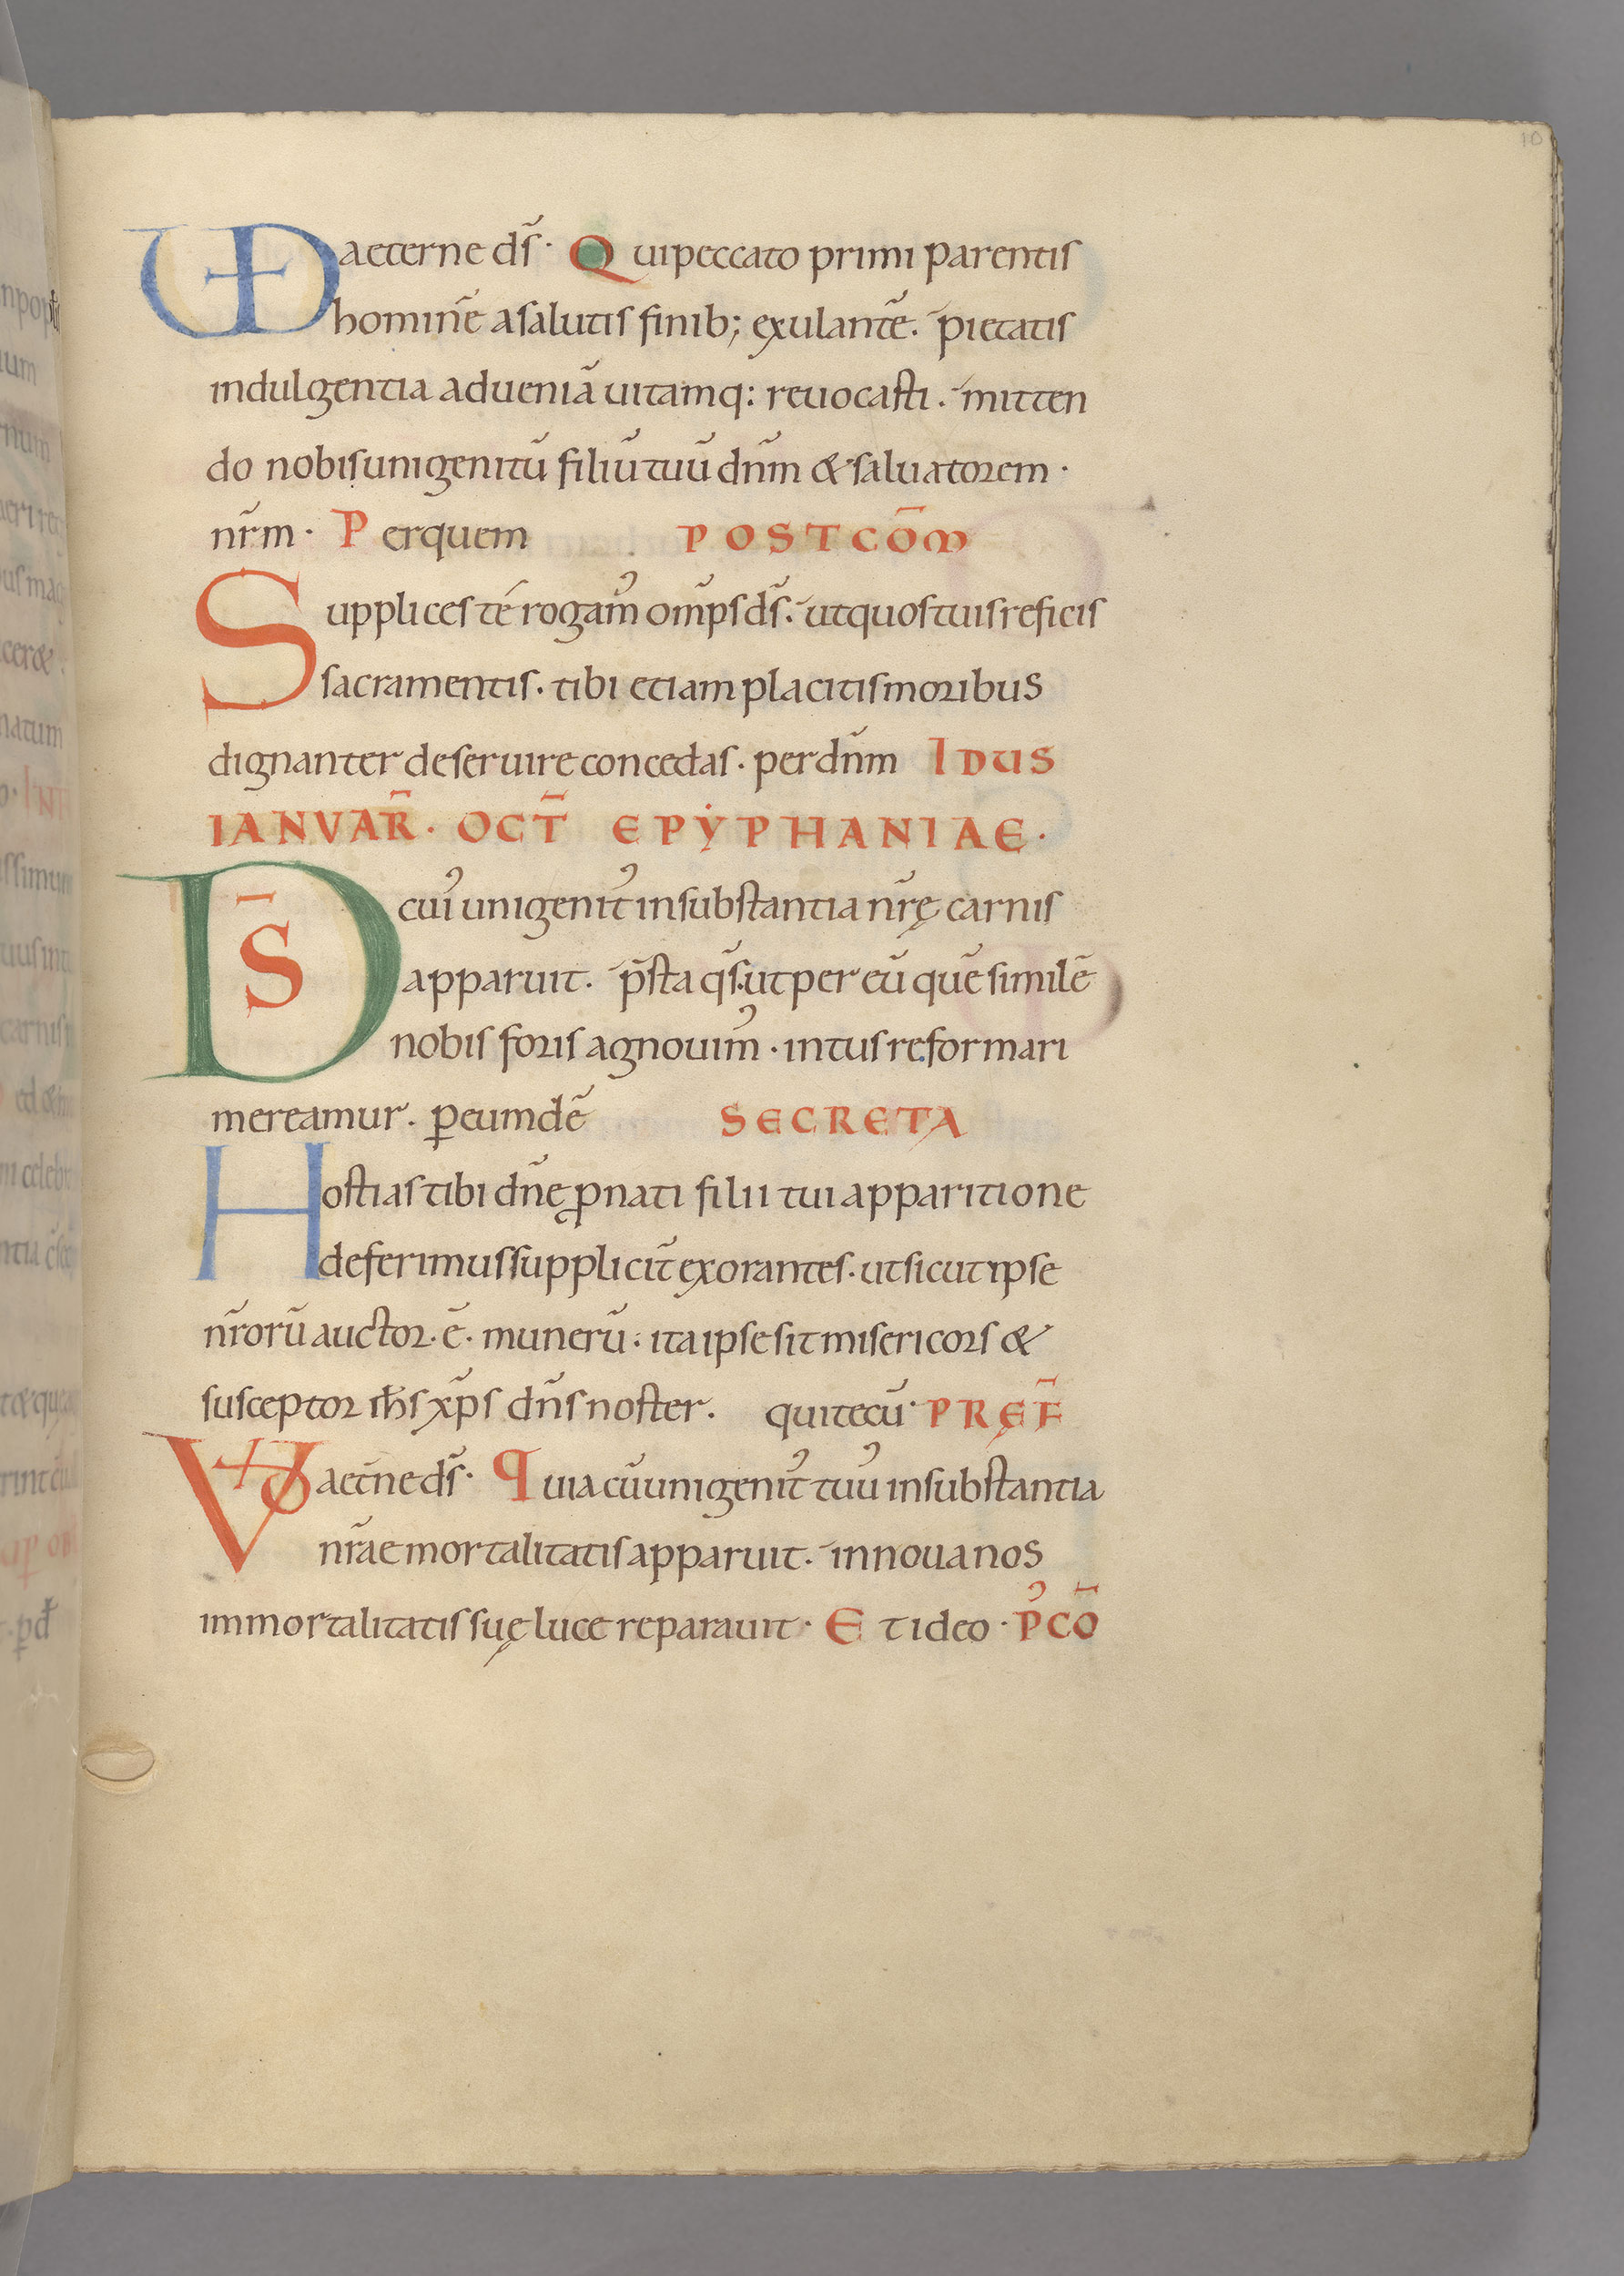 10
VD aeterne ds̄. Qui peccato primi parentis
hominē a salutis finib; exulantē. pietatis
indulgentia ad ueniā uitamq: reuocasti. mitten
do nobis unigenitū filiū tuū dn̄m & saluatorem.
nr̄m. Per quem POSTCŌM
Supplices te rogam᾽ om̄ps ds̄. ut quos tuis reficis
sacramentis. tibi etiam placitis moribus
dignanter deseruire concedas. per dn̄m IDUS
IANVAR̄. OCT̄ EPẎPHANIAE.
DS̄ cui᾽ unigenit᾽ in substantia nr̄ę carnis
apparuit. p̄sta qs̄. ut per eū quē similē
nobis foris agnouim᾽. intus reformari
mereamur. ꝑ eumdē SECRETA
Hostias tibi dn̄e ꝓ nati filii tui apparitione
deferimus supplicit̄ exorantes. ut sicut ipse
nr̄orū auctor. ē. munerū. ita ipse sit misericors &
susceptor ih̄s xp̄s dn̄s noster. qui tecū. PRĘF̄
VD aet̄ne ds̄. Quia cū unigenit᾽ tuu᾽ in substantia
nr̄ae mortalitatis apparuit. in noua nos
immortalitatis suę luce reparauit. Et ideo. P᾽CŌ